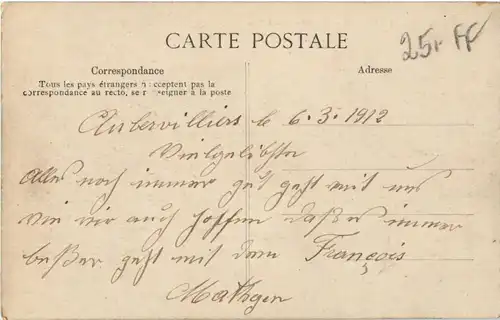 25r FF
CARTE POSTALE
Correspondance
Adresse
Tous les pays étrangers n'acceptent pas la
correspondance au recto, se renseigner à la poste
Aubervilliers le 6.3.1912
Vielgeliebster
Alles noch immer gut geht mit uns
wie wir auch hoffen daßes immer
beßer geht mit dem François
Mathgen